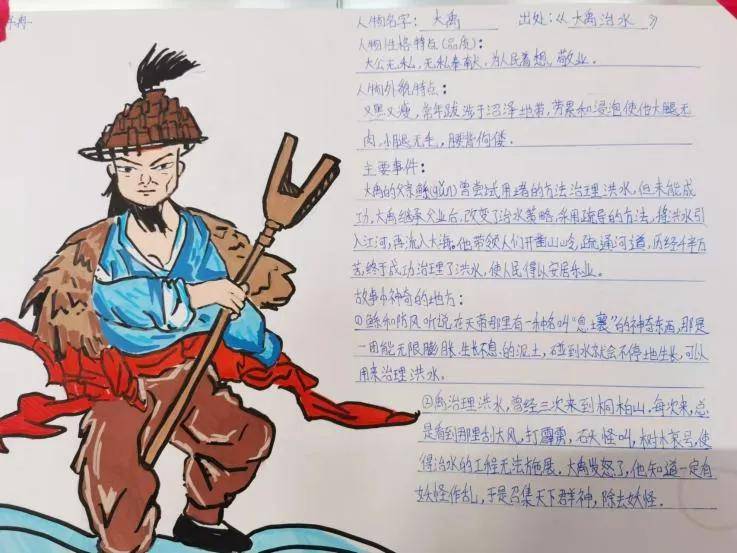 人物名字：大禹 出处：《大禹治水》
人物性格特点（品质）：
大公无私，无私奉献，为人民着想，敬业。
人物外貌特点：
又黑又瘦，常年跋涉于沼泽地带，劳累和浸泡使他大腿无
肉，小腿无毛，腰背佝偻。
主要事件：
大禹的父亲鲧(gǔn)曾尝试用堵的方法治理洪水，但未能成
功，大禹继承父业后，改变了治水策略，采用疏导的方法，将洪水引
入江河，再流入大海。他带领人们开凿山岭，疏通河道，历经千辛万
苦，终于成功治理了洪水，使人民得以安居乐业。
故事中神奇的地方：
①鲧和防风听说在天帝那里有一种名叫“息壤”的神奇东西，那是
一团能无限膨胀、生长不息的泥土，碰到水就会不停地生长，可以
用来治理洪水。
②禹治理洪水，曾经三次来到桐柏山，每次来，总
是看到那里刮大风，打霹雳，石头怪叫，树木哀号，使
得治水的工程无法施展，大禹发怒了，他知道一定有
妖怪作乱，于是召集天下群神，除去妖怪。